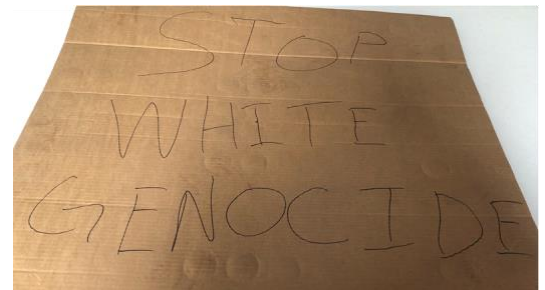 STOP
WHITE
GENOCIDE